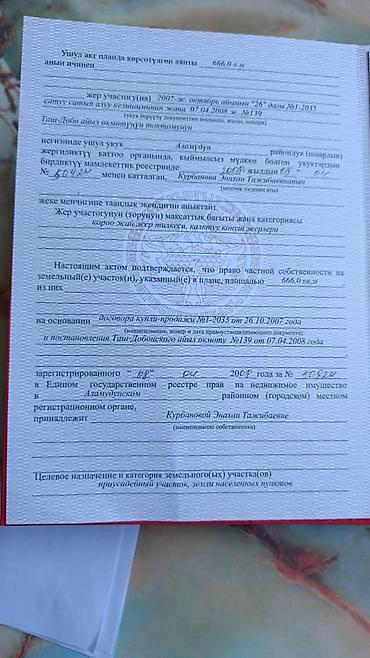 Ушул акт планда көрсөтүлгөн аянты 666,0 кв.м
анын ичинен
жер участогу(на) 2007-ж. октябрь айынын "26" дагы №1-2035
сатуу сатып алуу келишиминин жана 07.04.2008 ж. №139
(укук берүүчү документтин аталышы, датасы, номери)
Таш-Добо айыл өкмөтүнүн токтомунун
негизинде ушул укук Аламудун райондук (шаардык)
жергиликтүү каттоо органында, кыймылсыз мүлккө болгон укуктардын
бирдиктүү мамлекеттик реестринде 2008 жылдын 08 " 04
№ 80924 менен катталган, Курбанова Энахан Тажибаевнанын
(менчик ээсинин аты)
жеке менчигине таандык экендигин аныктайт.
Жер участогунун (торунун) максаттык багыты жана категориясы
короо жай жер тилкеси, калктуу конуш жерлери
Настоящим актом подтверждается, что право частной собственности на
земельный(е) участок(и), указанный(е) в плане, площадью 666,0 кв.м
из них
на основании договора купли-продажи №1-2035 от 26.10.2007 года
(наименование, номер и дата правоустанавливающего документа)
и постановления Таш-Добонского айыл окмоту №139 от 07.04.2008 года
зарегистрированного "08" 04 2008 года за № 80924
в Едином государственном реестре прав на недвижимое имущество
в Аламудунском районном (городском) местном
регистрационном органе,
принадлежит Курбановой Энахан Тажибаевне
(наименование собственника)
Целевое назначение и категория земельного(ых) участка(ов)
приусадебный участок, земли населенных пунктов